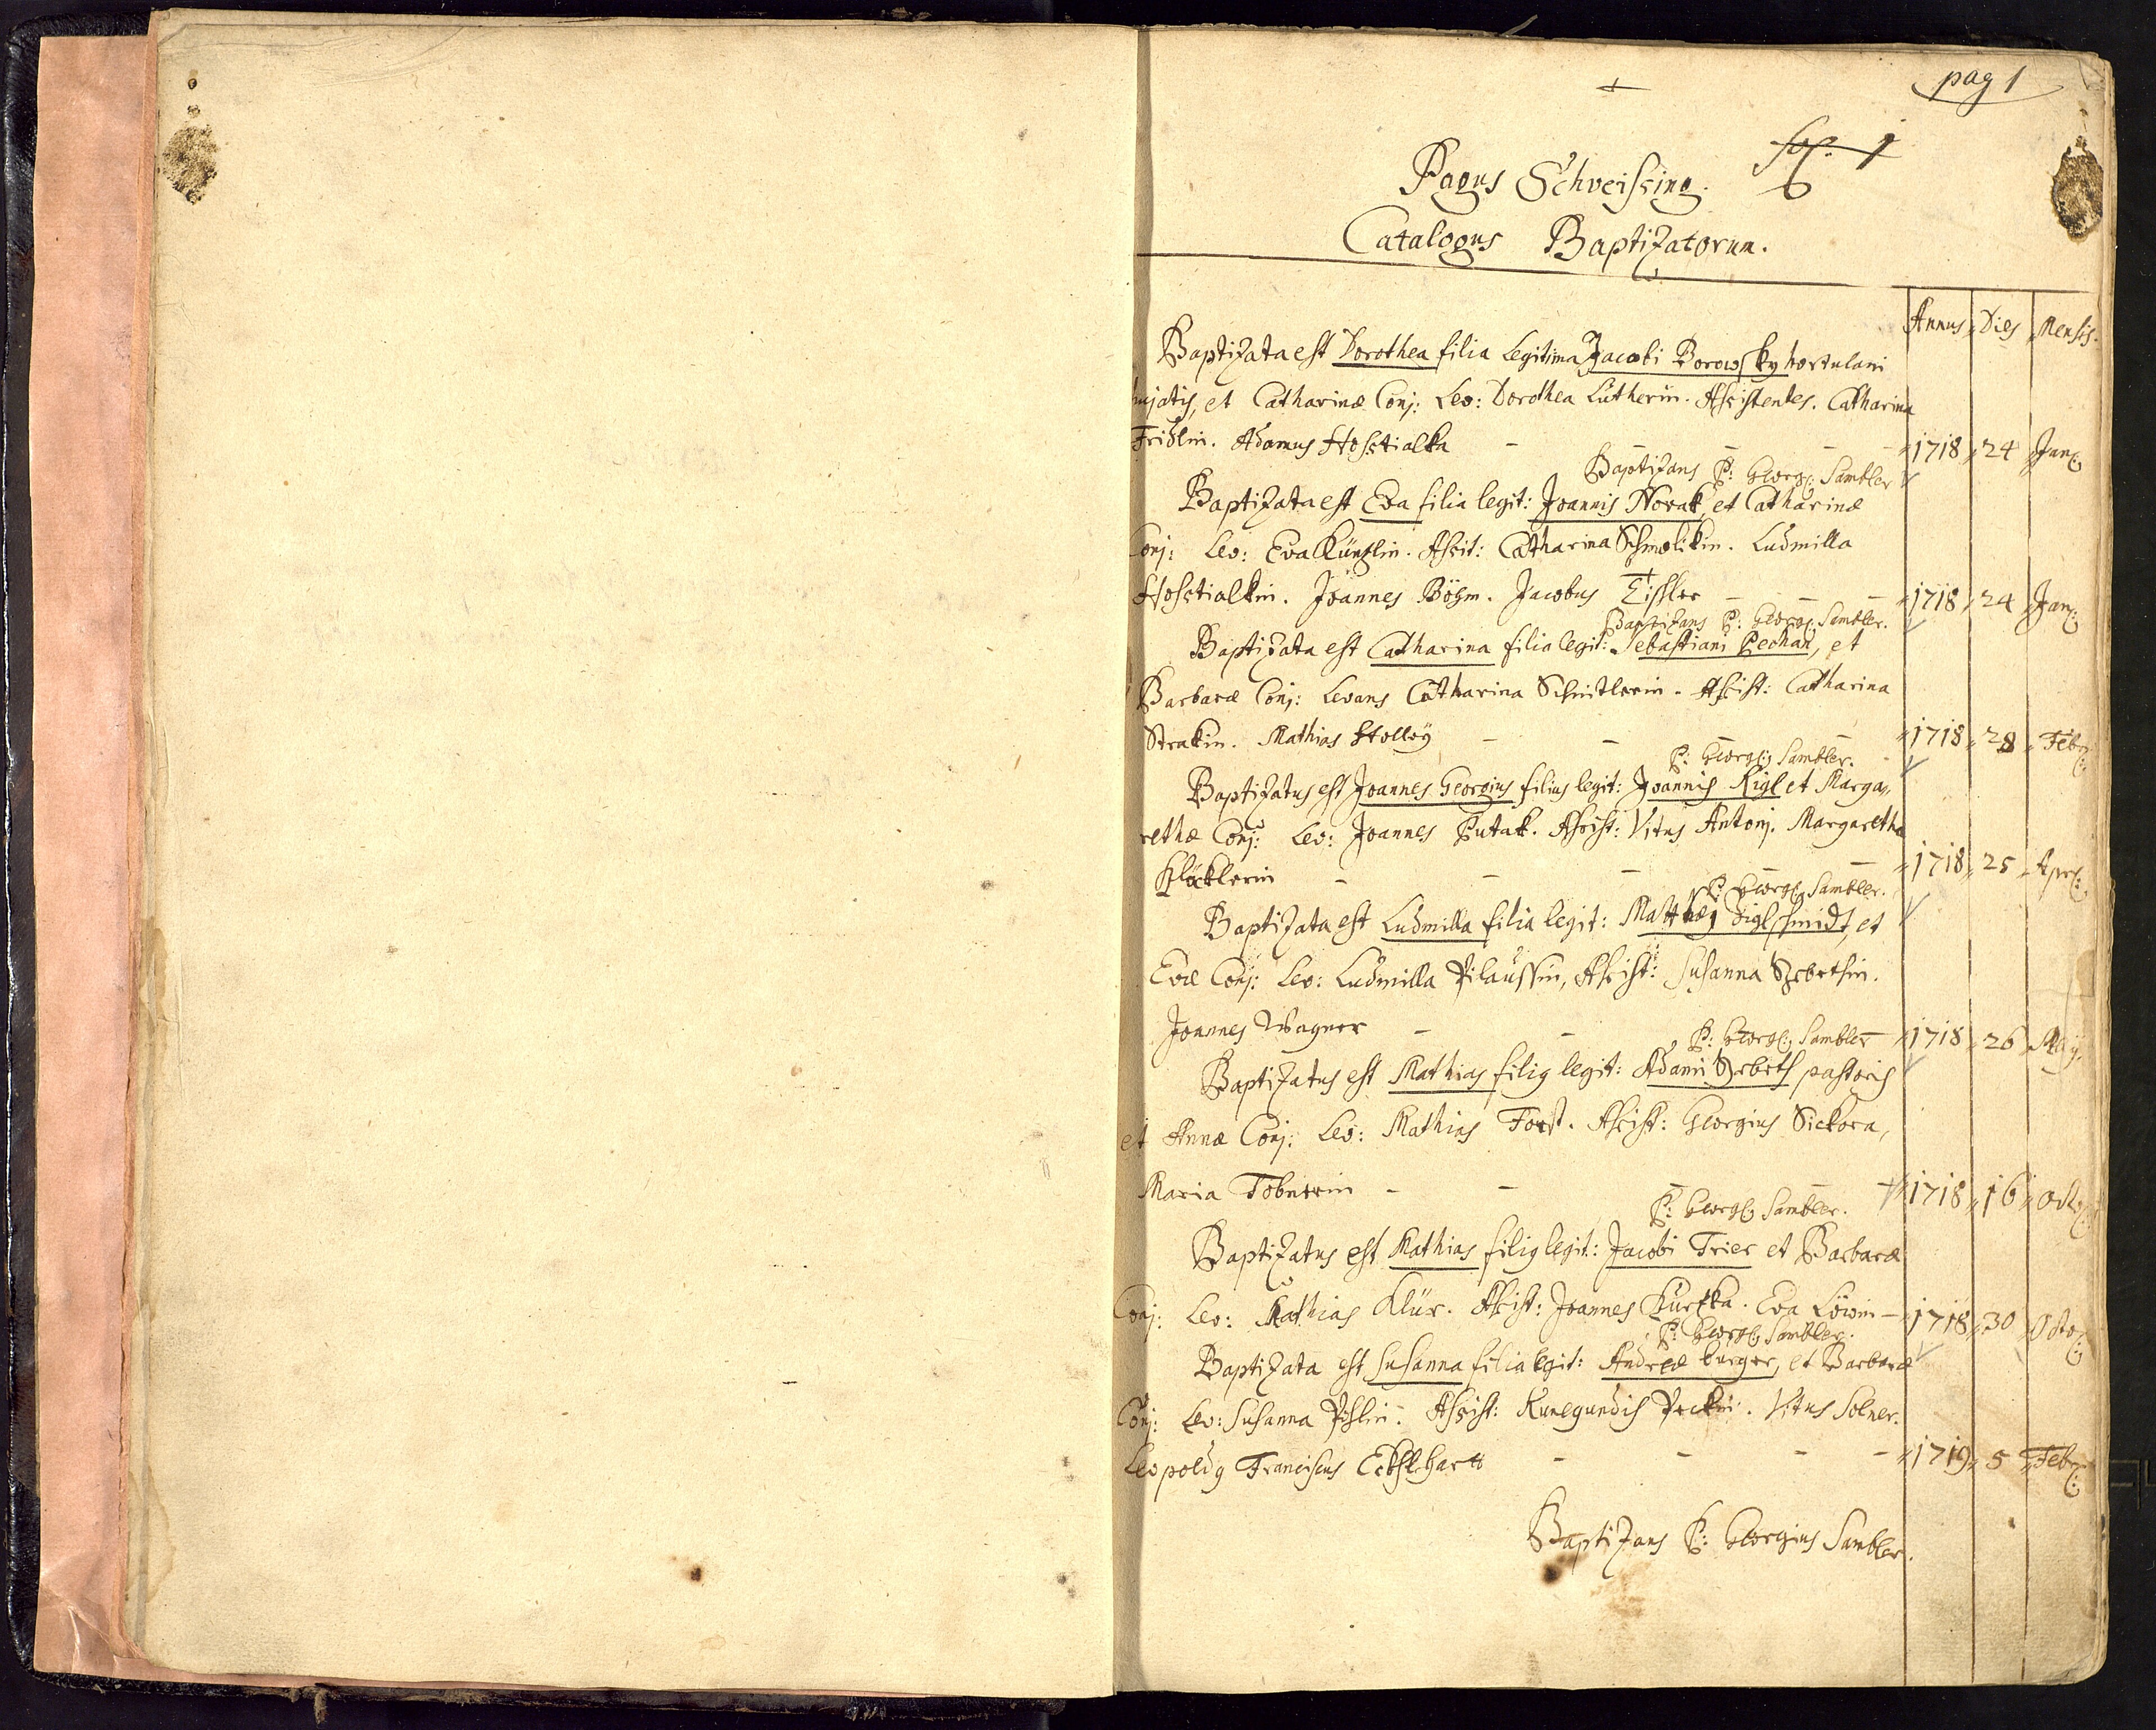 pag 1
fol. 1
Pagus Schveissing.
Catalogus Baptizatorum.
Annus Dies Mensis.
Baptizata est Dorothea filia Legitima Jacobi Borowsky hortulani
hujatis, et Catharinæ Conj: Lev: Dorothea Lutherin. Assistentes. Catharina
Fridlin. Adamus Hostialka – – – – 1718 24 Jan:
Baptizans P: Georg: Sambler
Baptizata est Eva filia legit: Joannis Novak, et Catharinæ
Conj: Lev: Eva Küntzlin. Assit: Catharina Schmolikin. Ludmilla
Hostialkin. Joannes Böhm. Jacobus Tischler – – – 1718 24 Jan:
Baptizans P: Georg: Sambler.
Baptizata est Catharina filia legit: Sebastiani Pechan, et
Barbaræ Conj: Levans Catharina Schnitlerin. Assist: Catharina
Strakin. Mathias Holley – – – 1718 28 Feb:
P: Georg: Sambler.
Baptizatus est Joannes Georgius filius legit: Joannis Rigl et Marga„
rethæ Conj: Lev: Joannes Putak. Assist: Vitus Antonj. Margaretha
Klöcklerin – – – – 1718 25 Apr:
P: Georg: Sambler.
Baptizata est Ludmilla filia legit: Matthæj Siglschmidt, et
Evæ Conj: Lev: Ludmilla Pilaussin, Assist: Susanna
Joannes Wagner – – 1718 26 Maij.
P: Georg: Sambler –
Baptizatus est Mathias filig legit: Adami pastoris
et Annæ Conj: Lev: Mathias Forst. Assist: Georgius Sickora,
Maria Tobnerin – – – – 1718 16 Oct:
P: Georg: Sambler.
Baptizatus est Mathias filig legit: Jacobi Trier et Barbaræ
Conj: Lev: Mathias Klür. Assist: Joannes Kurtzka. Eva Löwin – 1718 30 Octo:
P: Georg: Sambler.
Baptizata est Susanna filia legit: Andreæ burger, et Barbaræ
Conj: Lev: Susanna Assist: Kunegundis Vitus Solner.
Leopoldg Franciscus Eckhlhartt – – – – 1719 5 Feb:
Baptizans P: Georgius Sambler.